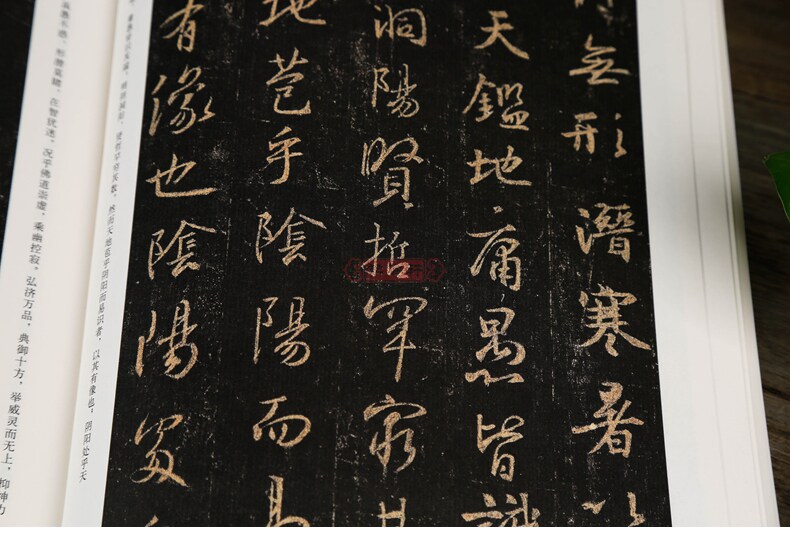 無形潛寒暑以
天鑑地庸愚皆識
洞陽賢哲罕窮其
地苞乎陰陽而易
有像也陰陽處
庸愚皆识其端，明阴洞阳，贤哲罕穷其数。然而天地苞乎阴阳而易识者，以其有像也，阴阳处乎天
愚不惑，形潜莫睹，在智犹迷。况乎佛道崇虚，乘幽控寂，弘济万品，典御十方，举威灵而无上，抑神力